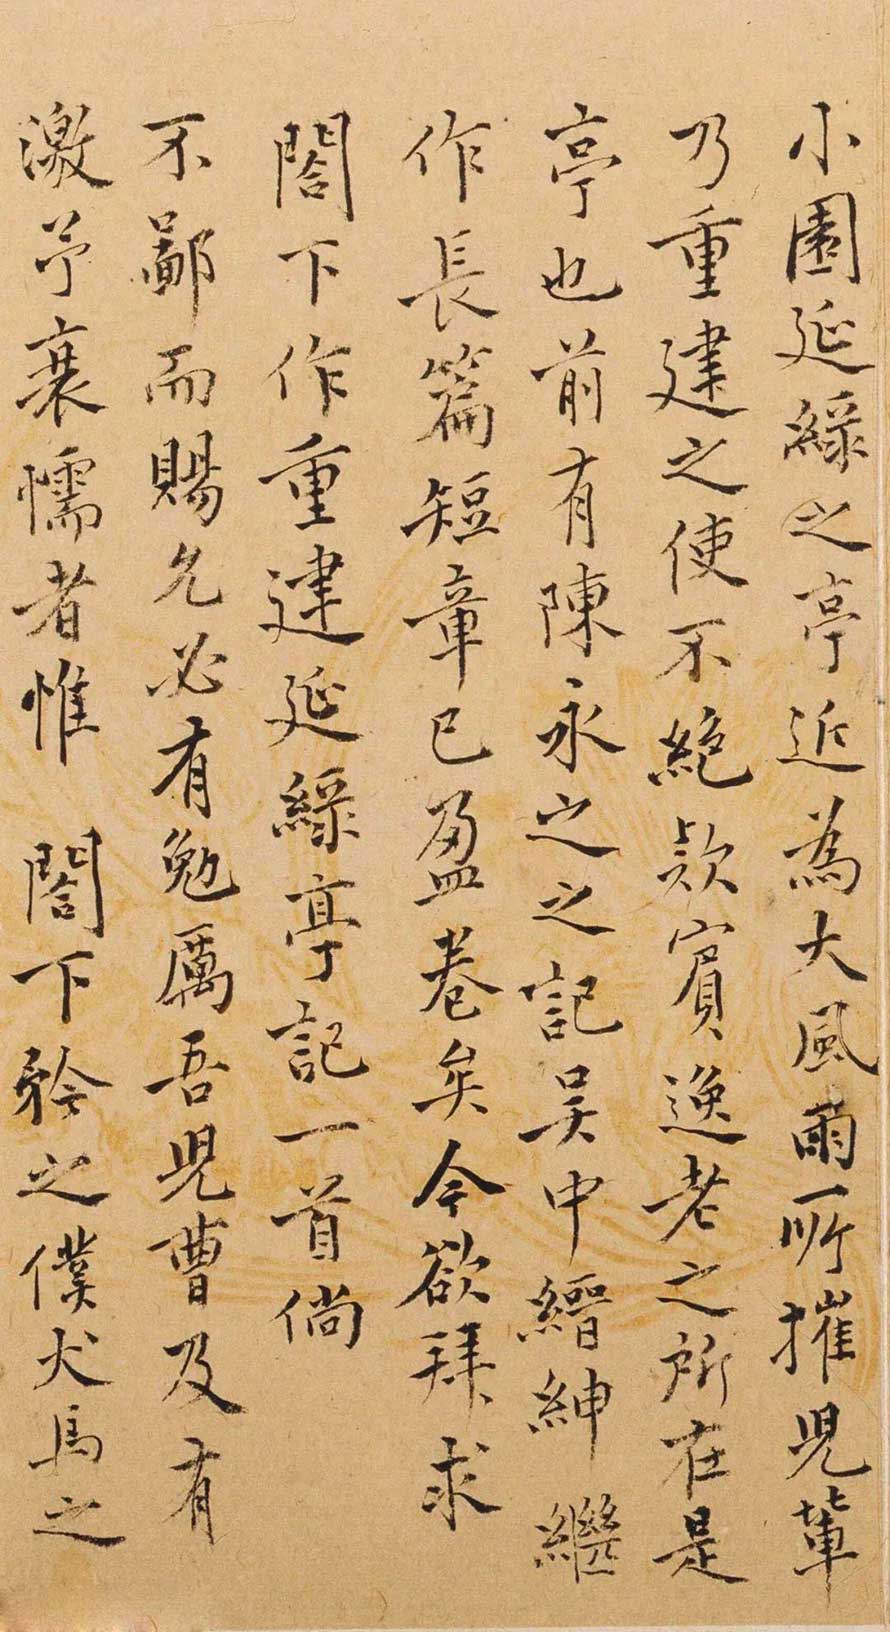 小園延綠之亭近為大風雨所摧兒輩
乃重建之使不絕欵賓逸老之所在是
亭也前有陳永之之記吳中縉紳繼
作長篇短章已盈卷矣今欲拜求
閤下作重建延綠亭記一首倘
不鄙而賜允必有勉厲吾兒曹及有
激予衰懦者惟 閤下矜之僕犬馬之